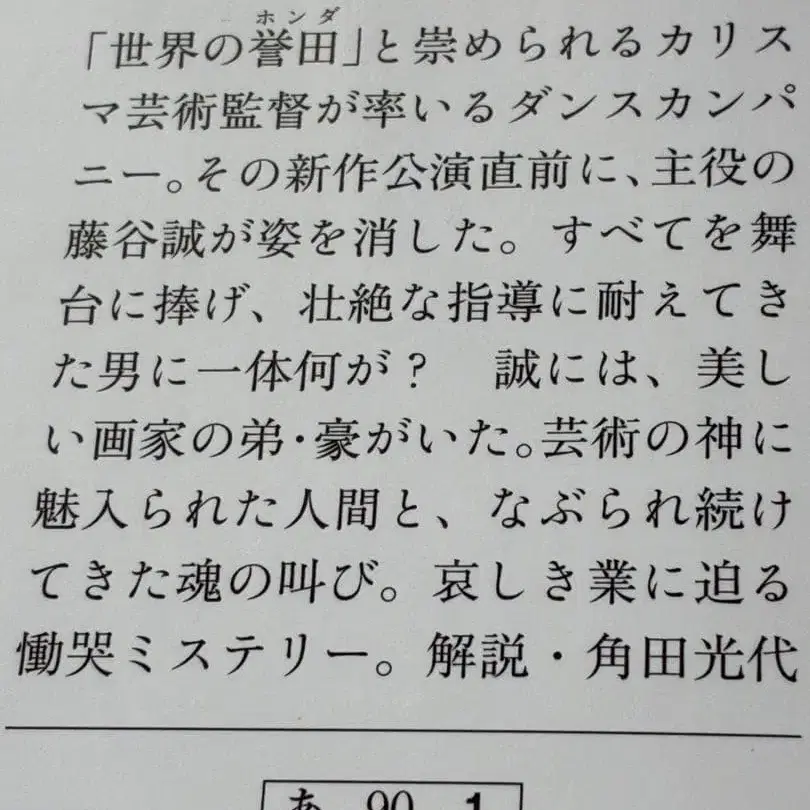 ホンダ
「世界の誉田」と崇められるカリス
マ芸術監督が率いるダンスカンパ
ニー。その新作公演直前に、主役の
藤谷誠が姿を消した。すべてを舞
台に捧げ、壮絶な指導に耐えてき
た男に一体何が？　誠には、美し
い画家の弟・豪がいた。芸術の神に
魅入られた人間と、なぶられ続け
てきた魂の叫び。哀しき業に迫る
慟哭ミステリー。解説・角田光代
あ 90 1